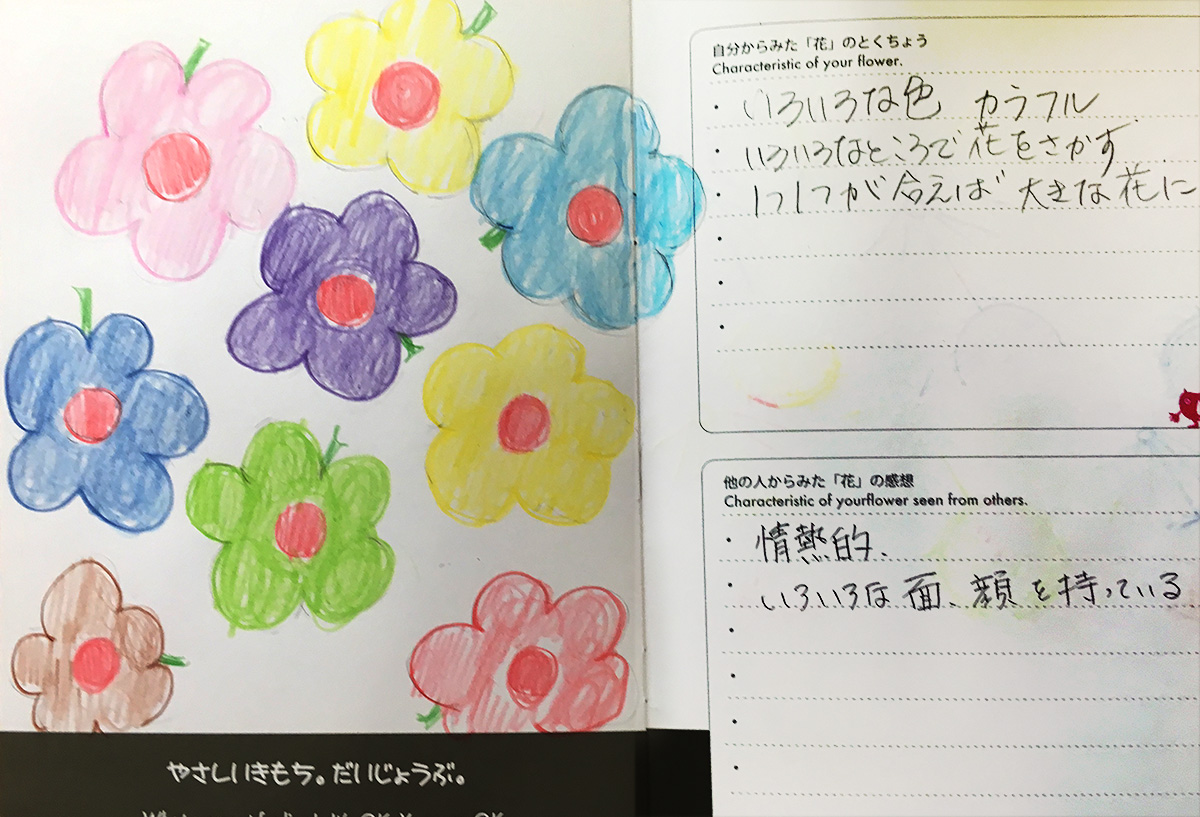 自分からみた「花」のとくちょう
Characteristic of your flower.
・いろいろな色 カラフル
・いろいろなところで花をさかす
・1つ1つが合えば 大きな花に
他の人からみた「花」の感想
Characteristic of yourflower seen from others.
・情熱的.
・いろいろな面、顔を持っている
やさしいきもち。だいじょうぶ。